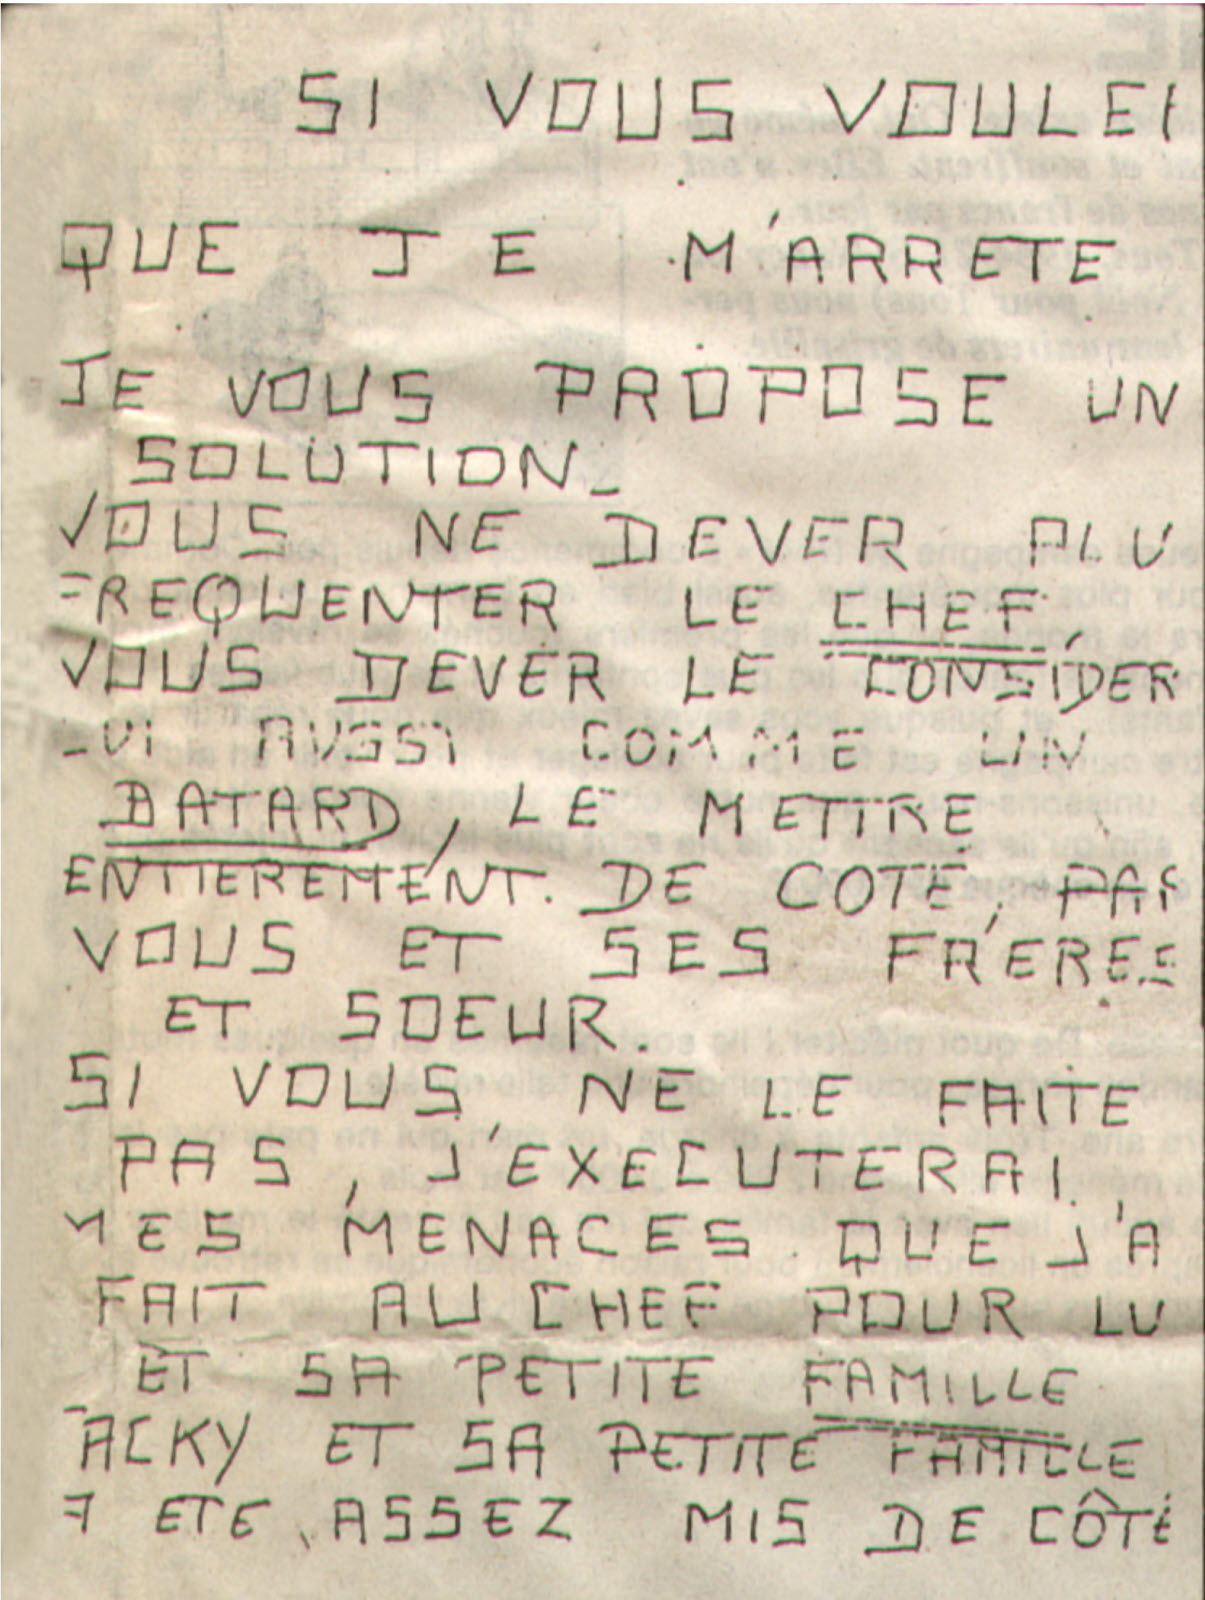 SI VOUS VOULEZ
QUE JE M'ARRETE
JE VOUS PROPOSE UN
SOLUTION_
VOUS NE DEVER PLU
FREQUENTER LE CHEF,
VOUS DEVER LE CONSIDER
LUI AUSSI COMME UN
BATARD, LE METTRE
ENTIEREMENT. DE COTE, PAR
VOUS ET SES FRERES
ET SOEUR.
SI VOUS NE LE FAITE
PAS, J'EXECUTERAI
MES MENACES QUE J'A
FAIT AU CHEF POUR LU
ET SA PETITE FAMILLE
JACKY ET SA PETITE FAMILLE
A ETE ASSEZ MIS DE CÔTÉ